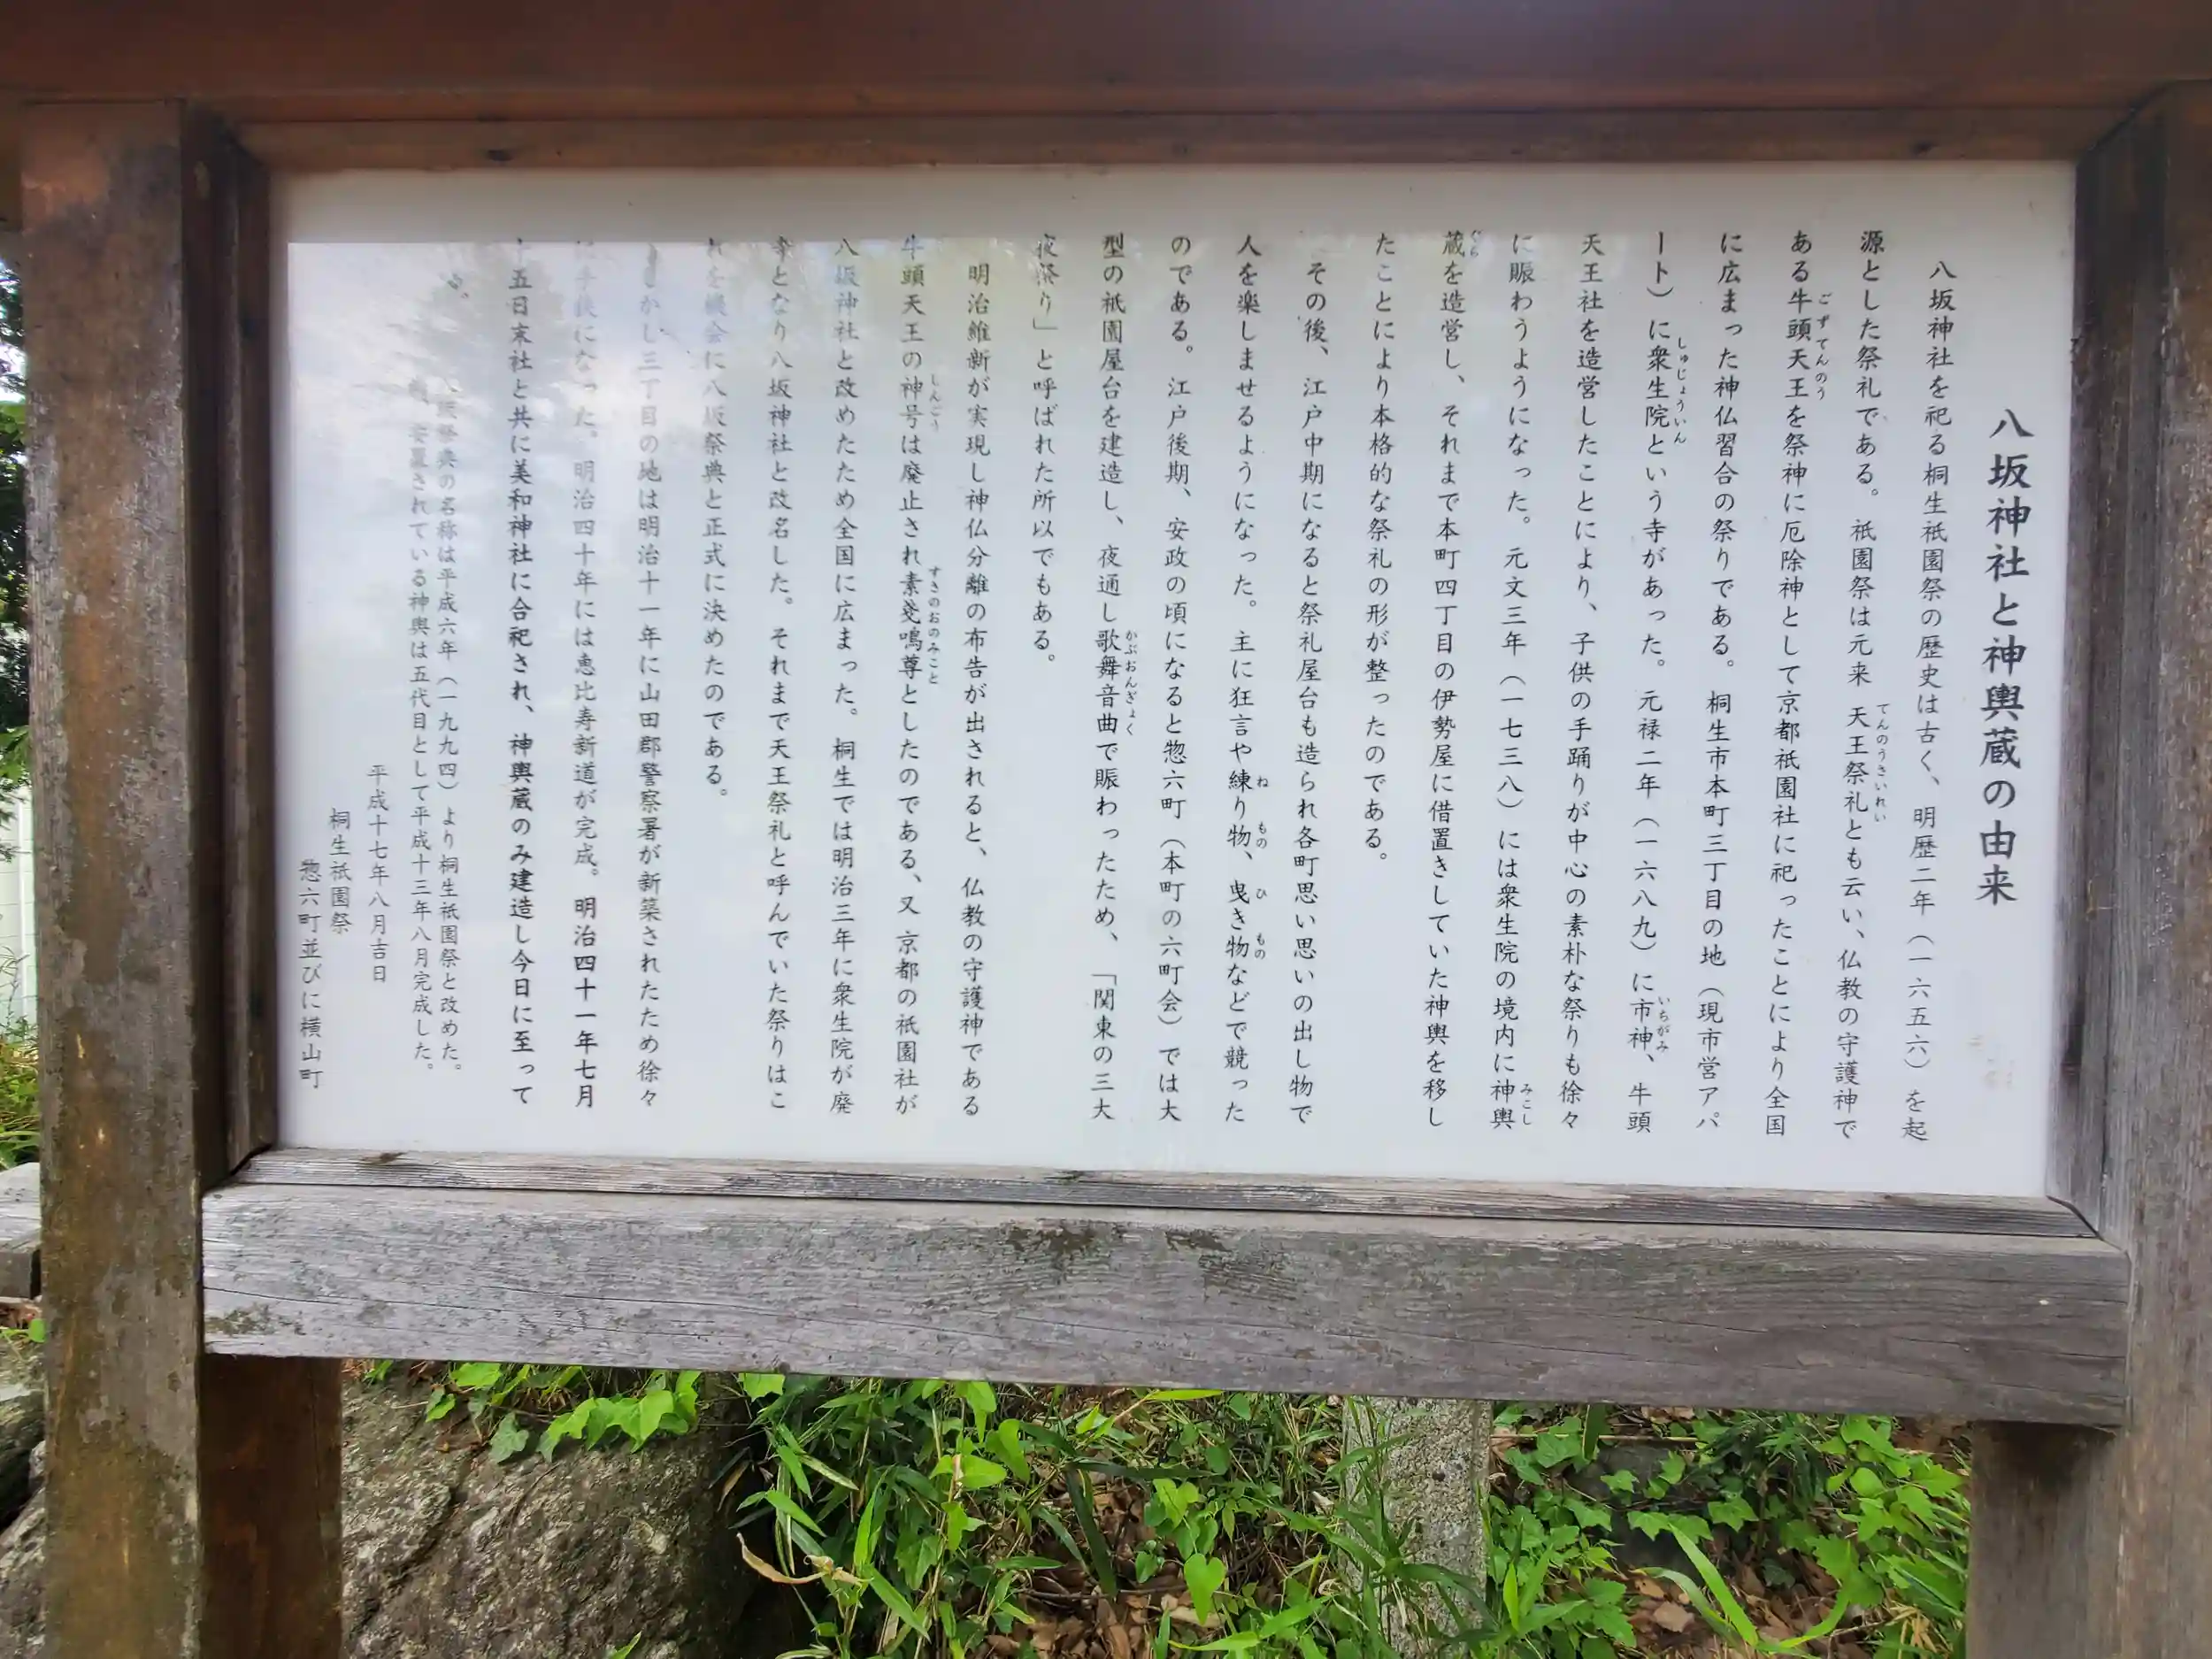 八坂神社と神輿蔵の由来
八坂神社を祀る桐生祇園祭の歴史は古く、明歴二年（一六五六）を起
源とした祭礼である。祇園祭は元来 天王祭礼とも云い、仏教の守護神で
ある牛頭天王を祭神に厄除神として京都祇園社に祀ったことにより全国
に広まった神仏習合の祭りである。桐生市本町三丁目の地（現市営アパ
ート）に衆生院という寺があった。元禄二年（一六八九）に市神、牛頭
天王社を造営したことにより、子供の手踊りが中心の素朴な祭りも徐々
に賑わうようになった。元文三年（一七三八）には衆生院の境内に神輿
蔵を造営し、それまで本町四丁目の伊勢屋に借置きしていた神輿を移し
たことにより本格的な祭礼の形が整ったのである。
その後、江戸中期になると祭礼屋台も造られ各町思い思いの出し物で
人を楽しませるようになった。主に狂言や練り物、曳き物などで競った
のである。江戸後期、安政の頃になると惣六町（本町の六町会）では大
型の祇園屋台を建造し、夜通し歌舞音曲で賑わったため、「関東の三大
夜祭り」と呼ばれた所以でもある。
明治維新が実現し神仏分離の布告が出されると、仏教の守護神である
牛頭天王の神号は廃止され素戔鳴尊としたのである、又 京都の祇園社が
八坂神社と改めたため全国に広まった。桐生では明治三年に衆生院が廃
寺となり八坂神社と改名した。それまで天王祭礼と呼んでいた祭りはこ
れを機会に八坂祭典と正式に決めたのである。
かし三丁目の地は明治十一年に山田郡警察署が新築されたため徐々
に手狭になった。明治四十年には恵比寿新道が完成。明治四十一年七月
十五日末社と共に美和神社に合祀され、神輿蔵のみ建造し今日に至って
祭典の名称は平成六年（一九九四）より桐生祇園祭と改めた。
安置されている神輿は五代目として平成十三年八月完成した。
平成十七年八月吉日
桐生祇園祭
惣六町並びに横山町